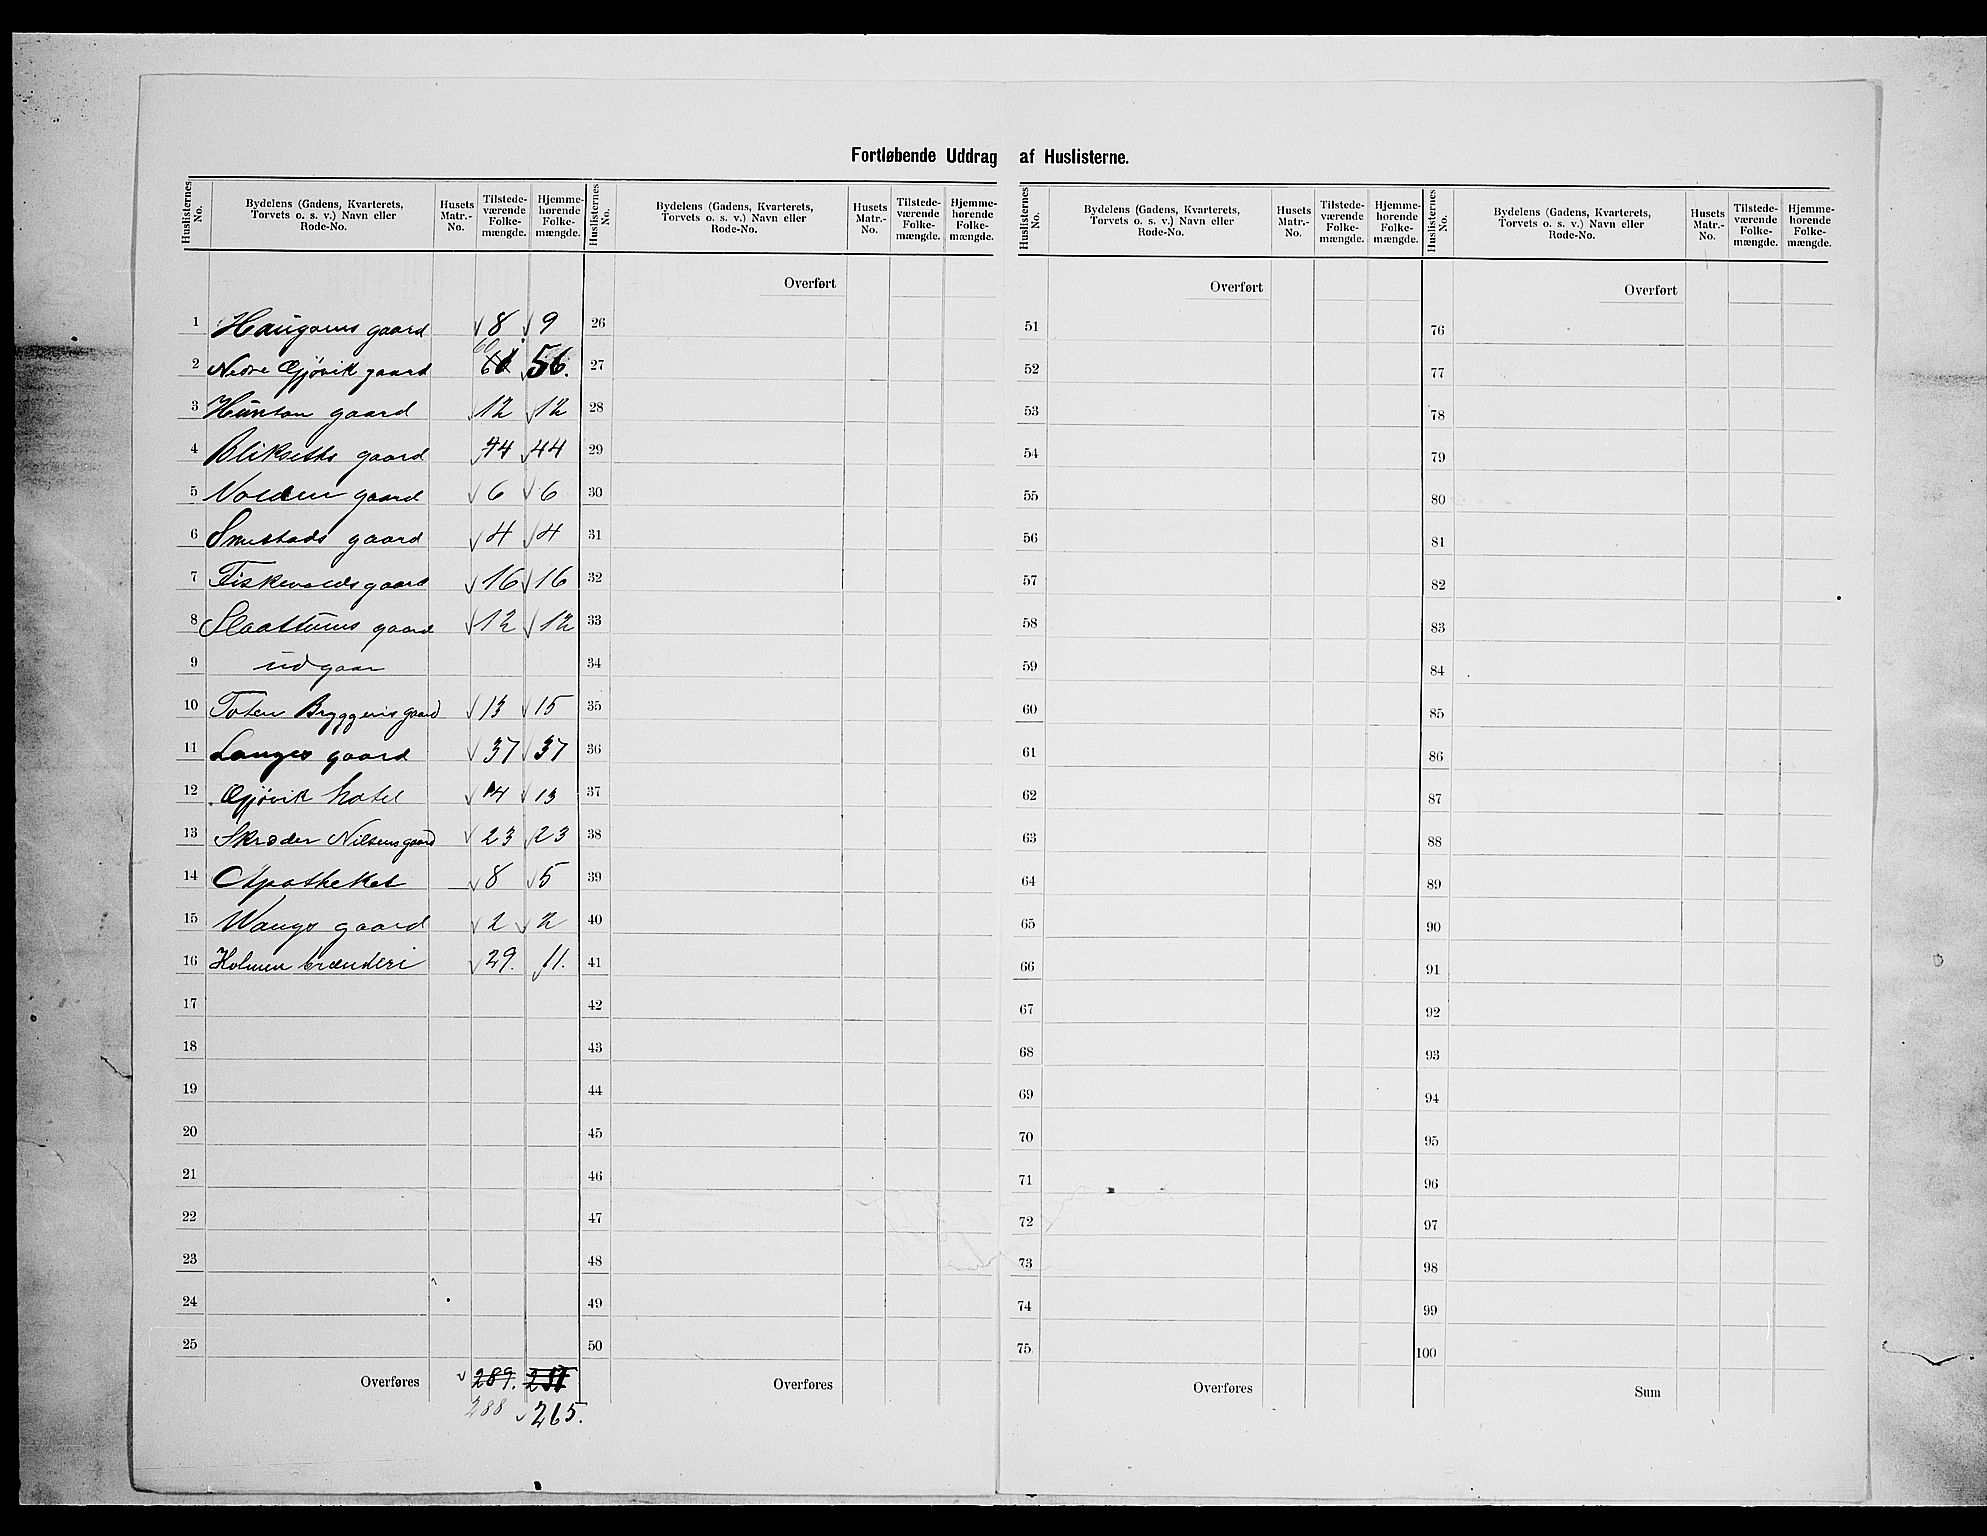 Fortløbende Uddrag af Huslisterne.
Huslisternes No. Bydelens (Gadens, Kvarterets, Torvets o. s. v.) Navn eller Rode-No. Husets Matr.-No. Tilstede-værende Folke-mængde. Hjemme-hørende Folke-mængde. Huslisternes No. Bydelens (Gadens, Kvarterets, Torvets o. s. v.) Navn eller Rode-No. Husets Matr.-No. Tilstede-værende Folke-mængde. Hjemme-hørende Folke-mængde. Huslisternes No. Bydelens (Gadens, Kvarterets, Torvets o. s. v.) Navn eller Rode-No. Husets Matr.-No. Tilstede-værende Folke-mængde. Hjemme-hørende Folke-mængde. Huslisternes No. Bydelens (Gadens, Kvarterets, Torvets o. s. v.) Navn eller Rode-No. Husets Matr.-No. Tilstede-værende Folke-mængde. Hjemme-hørende Folke-mængde.
Overført Overført Overført
1 Haugoms gaard 8 9 26 51 76
60
2 Nedre Gjøvik gaard 61 56. 27 52 77
3 Hunton gaard 12 12 28 53 78
4 Bliksetts gaard 44 44 29 54 79
5 Volden gaard 6 6 30 55 80
6 Smestads gaard 4 4 31 56 81
7 Fiskevolds gaard 16 16 32 57 82
8 Slaattums gaard 12 12 33 58 83
9 udgaar 34 59 84
10 Toten Bryggeris gaard 13 15 35 60 85
11 Langes gaard 37 37 36 61 86
12 Gjøvik hotel 14 13 37 62 87
13 Skrøder Nilsens gaard 23 23 38 63 88
14 Apotheket 8 5 39 64 89
15 Wangs gaard 2 2 40 65 90
16 Holmen brænderi 29. 11. 41 66 91
17 42 67 92
18 43 68 93
19 44 69 94
20 45 70 95
21 46 71 96
22 47 72 97
23 48 73 98
24 49 74 99
25 50 75 100
Overføres 289. Overføres Overføres Sum
288 265.